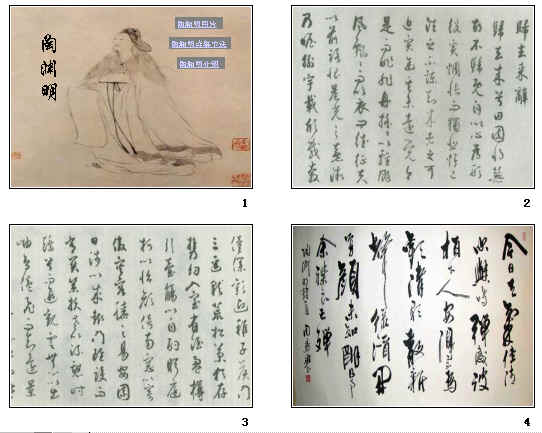 陶渊明
陶渊明图片
陶渊明诗歌书法
陶渊明介绍
1
歸去来辭
歸去来兮田園將蕪
胡不歸既自以心為形
役奚惆悵而獨悲悟已
往之不諫知来者之可
追實迷途其未遠覺今
是而昨非舟摇以輕颺
風飄飄而吹衣問征夫
以前路恨晨光之熹微
乃瞻衡宇載欣載奔
2
僮僕歡迎稚子候門
三逕就荒松菊猶存
携幼入室有酒盈樽
引壺觴以自酌眄庭
柯以怡顔倚南窗以寄
傲審容膝之易安園
日涉以成趣門雖設而
常關策扶老以流憩時
矯首而遐觀雲無心以出
岫鳥倦飛而知還景
3
今日天氣佳清
吹與鳴彈感彼
柏下人安得不為
歡清歌散新
聲綠酒開
芳顔未知明日事
余襟良已殫
4